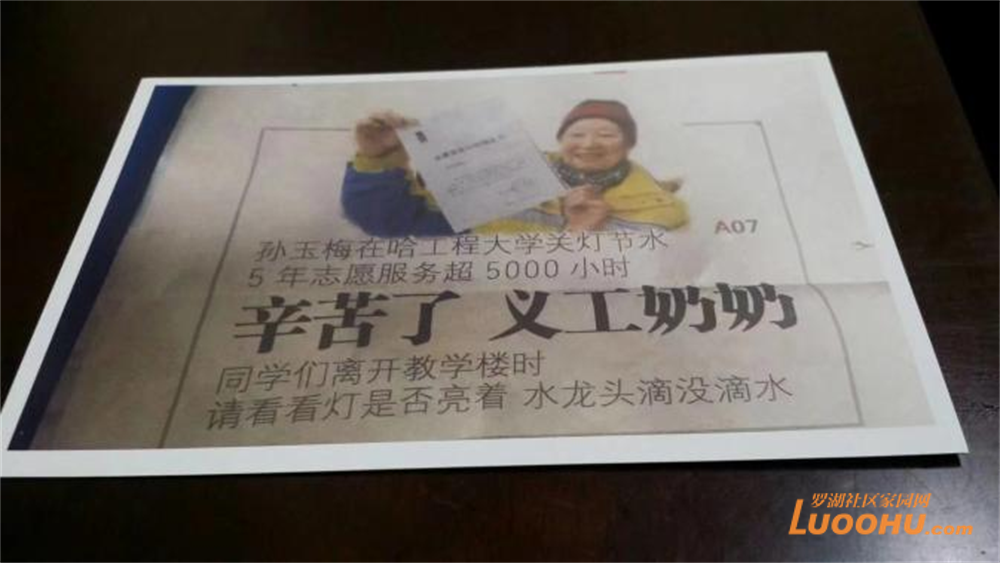 A07
孙玉梅在哈工程大学关灯节水
5 年志愿服务超 5000 小时
辛苦了 义工奶奶
同学们离开教学楼时
请看看灯是否亮着 水龙头滴没滴水
罗湖社区家园网
LUOOHU.com